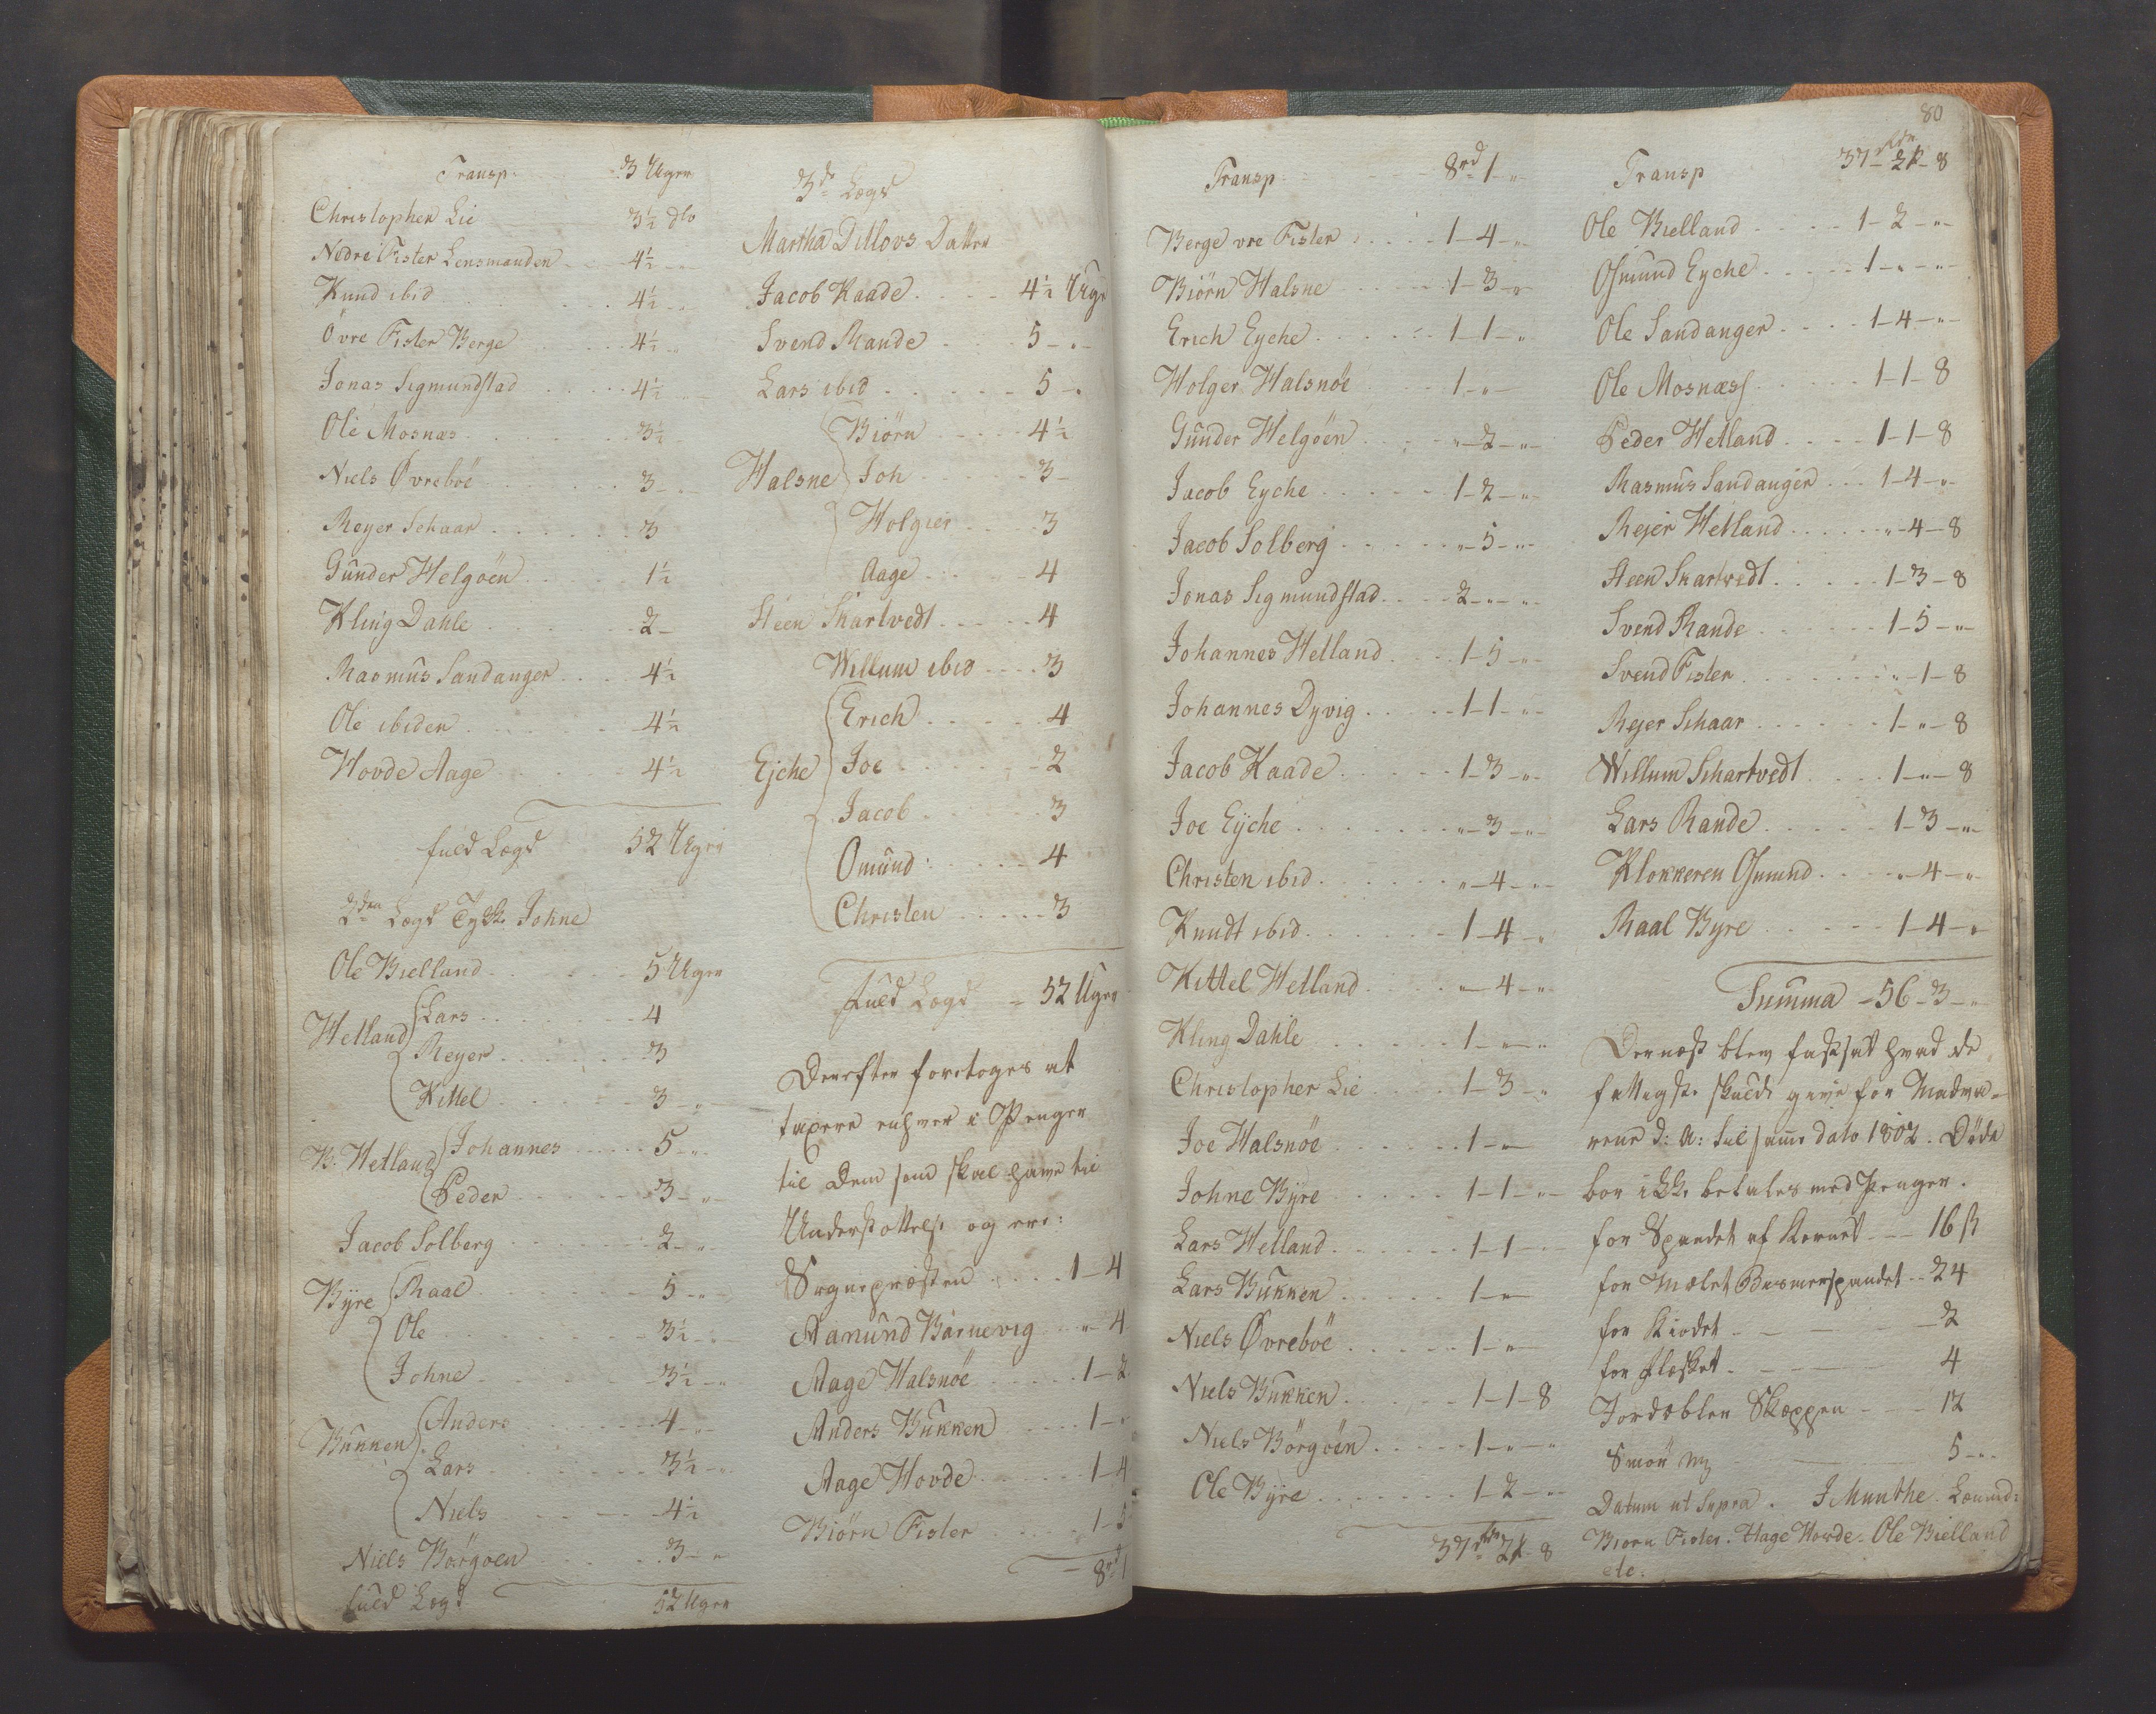 Transp. 3 Uger
Christophen Lie 3½ do
Nedre Fister Lensmanden 4½
Knud ibid 4½
Övre Fister Berge 4½
Jonas Sigmundstad 4½
Ole Mosnæs 3½
Niels Øvreböe 3
Reyer Schaar 3
Gunder Helgöen 1½
Kling Dahle 2
Rasmus Sandanger 4½
Ole ibiden 4½
Hovde Aage 4½
fuld Lægd 52 Uger
2den Lægd Johne
Ole Bielland 5 Uger
Hetland Lars 4
Reyer 3
Kittel 3
B. Hetland Johannes 5
Peder 3
Jacob Solberg 2
Byre Raal 5
Ole 3½
Johne 3½
Bukken Anders 4
Lars 3½
Niels 4½
Niels Börgöen 3
fuld Lægd 52 Uger
3de Lægd
Martha Ditlovs Datter
Jacob Kaade 4½ Uger
Svend Rande 5
Lars ibid 5
Halsne Biörn 4½
Joh 3
Holgier 3
Aage 4
Steen Skartvedt 4
Willum ibid 3
Ejche Erich 4
Joe 2
Jacob 3
Omund 4
Christen 3
fuld Lægd 52 Uger
Derefter foretoges at
taxere enhver i Penger
til Dem som skal have til
Understøttelse og ere:
Sognepræsten 1-4
Aanund Barnevig "-4
Aage Halsnöe 1-2
Anders Bukken 1-"
Aage Hovde 1-4
Biörn Fister 1-5
8rd 1
80
Transp 8rd 1-"
Berge vre Fister 1-4-"
Biörn Halsne 1-3-"
Erich Eyche 1-1-"
Holger Halsnöe 1-"-
Gunder Helgöen "-2-"
Jacob Eyche 1-2-"
Jacob Solberg "-5-"
Jonas Sigmundstad 2-"-"
Johannes Hetland 1-5-"
Johannes Dyvig 1-1-"
Jacob Kaade 1-3-"
Joe Eyche "-3-"
Christen ibid "-4-"
Knudt ibid 1-4-"
Kittel Hetland "-4-"
Kling Dahle 1-"-"
Christopher Lie 1-3-"
Joe Halsnöe 1-"-
Johne Byre 1-1-"
Lars Hetland 1-1-
Lars Bukken 1-"-
Niels Øvreböe 1-"-
Niels Bukken 1-1-8
Niels Börgöen 1-"-"
Ole Byre 1-2-"
37rdr 2 8
Transp 37 rdr 2 8
Ole Bielland 1-2-"
Osmund Eyche 1-"-"
Ole Sandanger 1-4-"
Ole Mosnæss 1-1-8
Peder Hetland 1-1-8
Rasmus Sandanger 1-4-"
Rejer Hetland "-4-8
Steen Skartvedt 1-3-8
Svend Rande 1-5-"
Svend Fister "-1-8
Rejer Schaar 1-"-8
Willum Schartvedt 1-"-8
Lars Rande 1-3-"
Klokkeren Osmund "-4-"
Raal Byre 1-4-"
Summa 56-3-"
Dernæst blev fastsat hvad de
fattigste skulde give for Madva-
rene d: A: til samme dato 1802. Döde
bør ikke betales med Penger.
for Spandet af Kornet 16 ß
for Mælet Bismerspundet 24
for Kiødet 2
for Flesket 4
Jordæbler Skæppen 12
Smør 5
Datum ut Supra. J Munthe. Lænsmd:
Biørn Fister. Aage Hovde. Ole Bielland
etc.